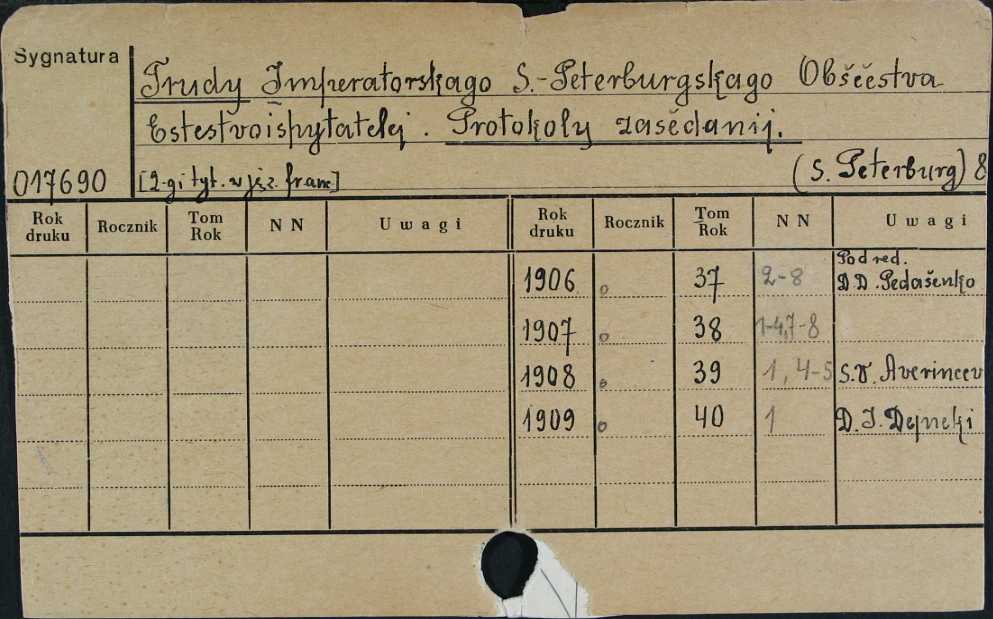 Sygnatura
Trudy Imperatorskago S.-Peterburgskago Obščěstva
Estestvoispytatelej. Protokoly zasědanij.
017690 [2-gi tyt. w jęz. franc] (S. Peterburg) 8
Rok druku Rocznik Tom Rok N N Uwagi Rok druku Rocznik Tom Rok N N Uwagi
1906 o 37 2-8 Pod red. D.D. Pedašenko
1907 o 38 1-4,7-8
1908 o 39 1, 4-5 S.V. Averincev
1909 o 40 1 D. I. Dejneki